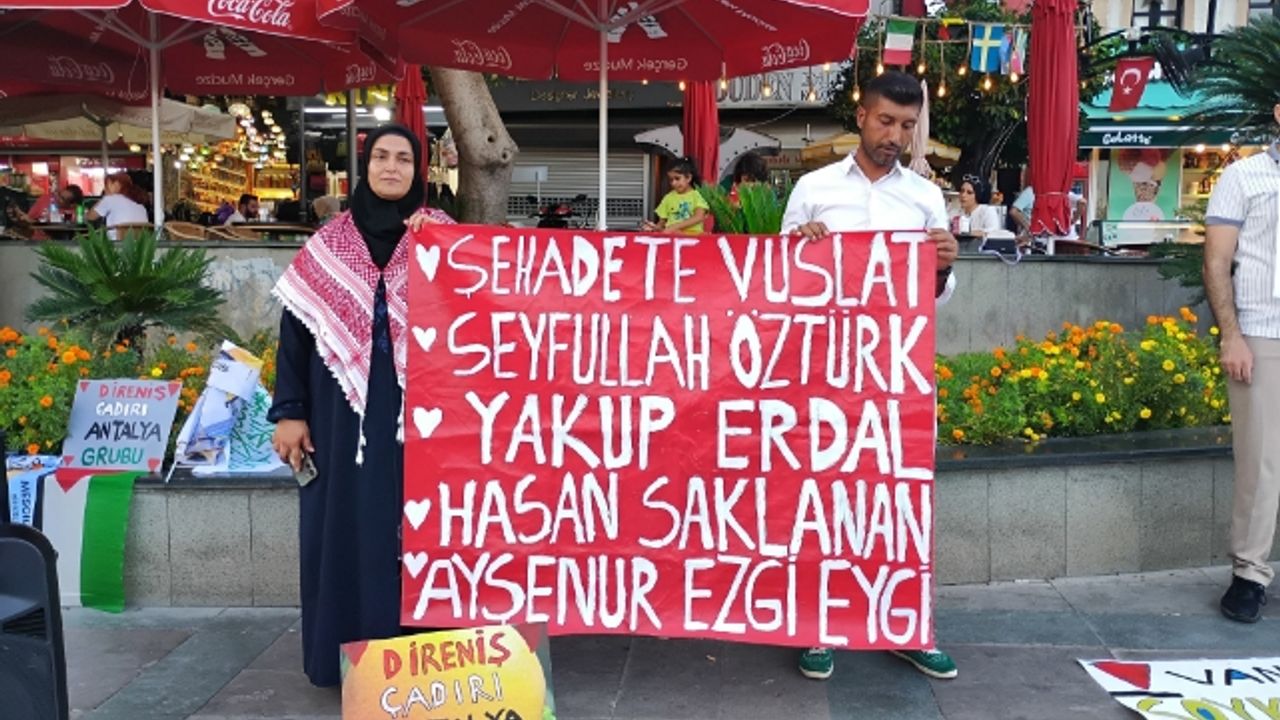 Coca-Cola
Gerçek Mucize
Coca-Cola
Coca-Cola
Designer Jewellery
ŞEHADETE VUSLAT
SEYFULLAH ÖZTÜRK
YAKUP ERDAL
HASAN SAKLANAN
AYŞENUR EZGİ EYGİ
DİRENİŞ
ÇADIRI
ANTALYA
GRUBU
DİRENİŞ
ÇADIRI
ANTALYA